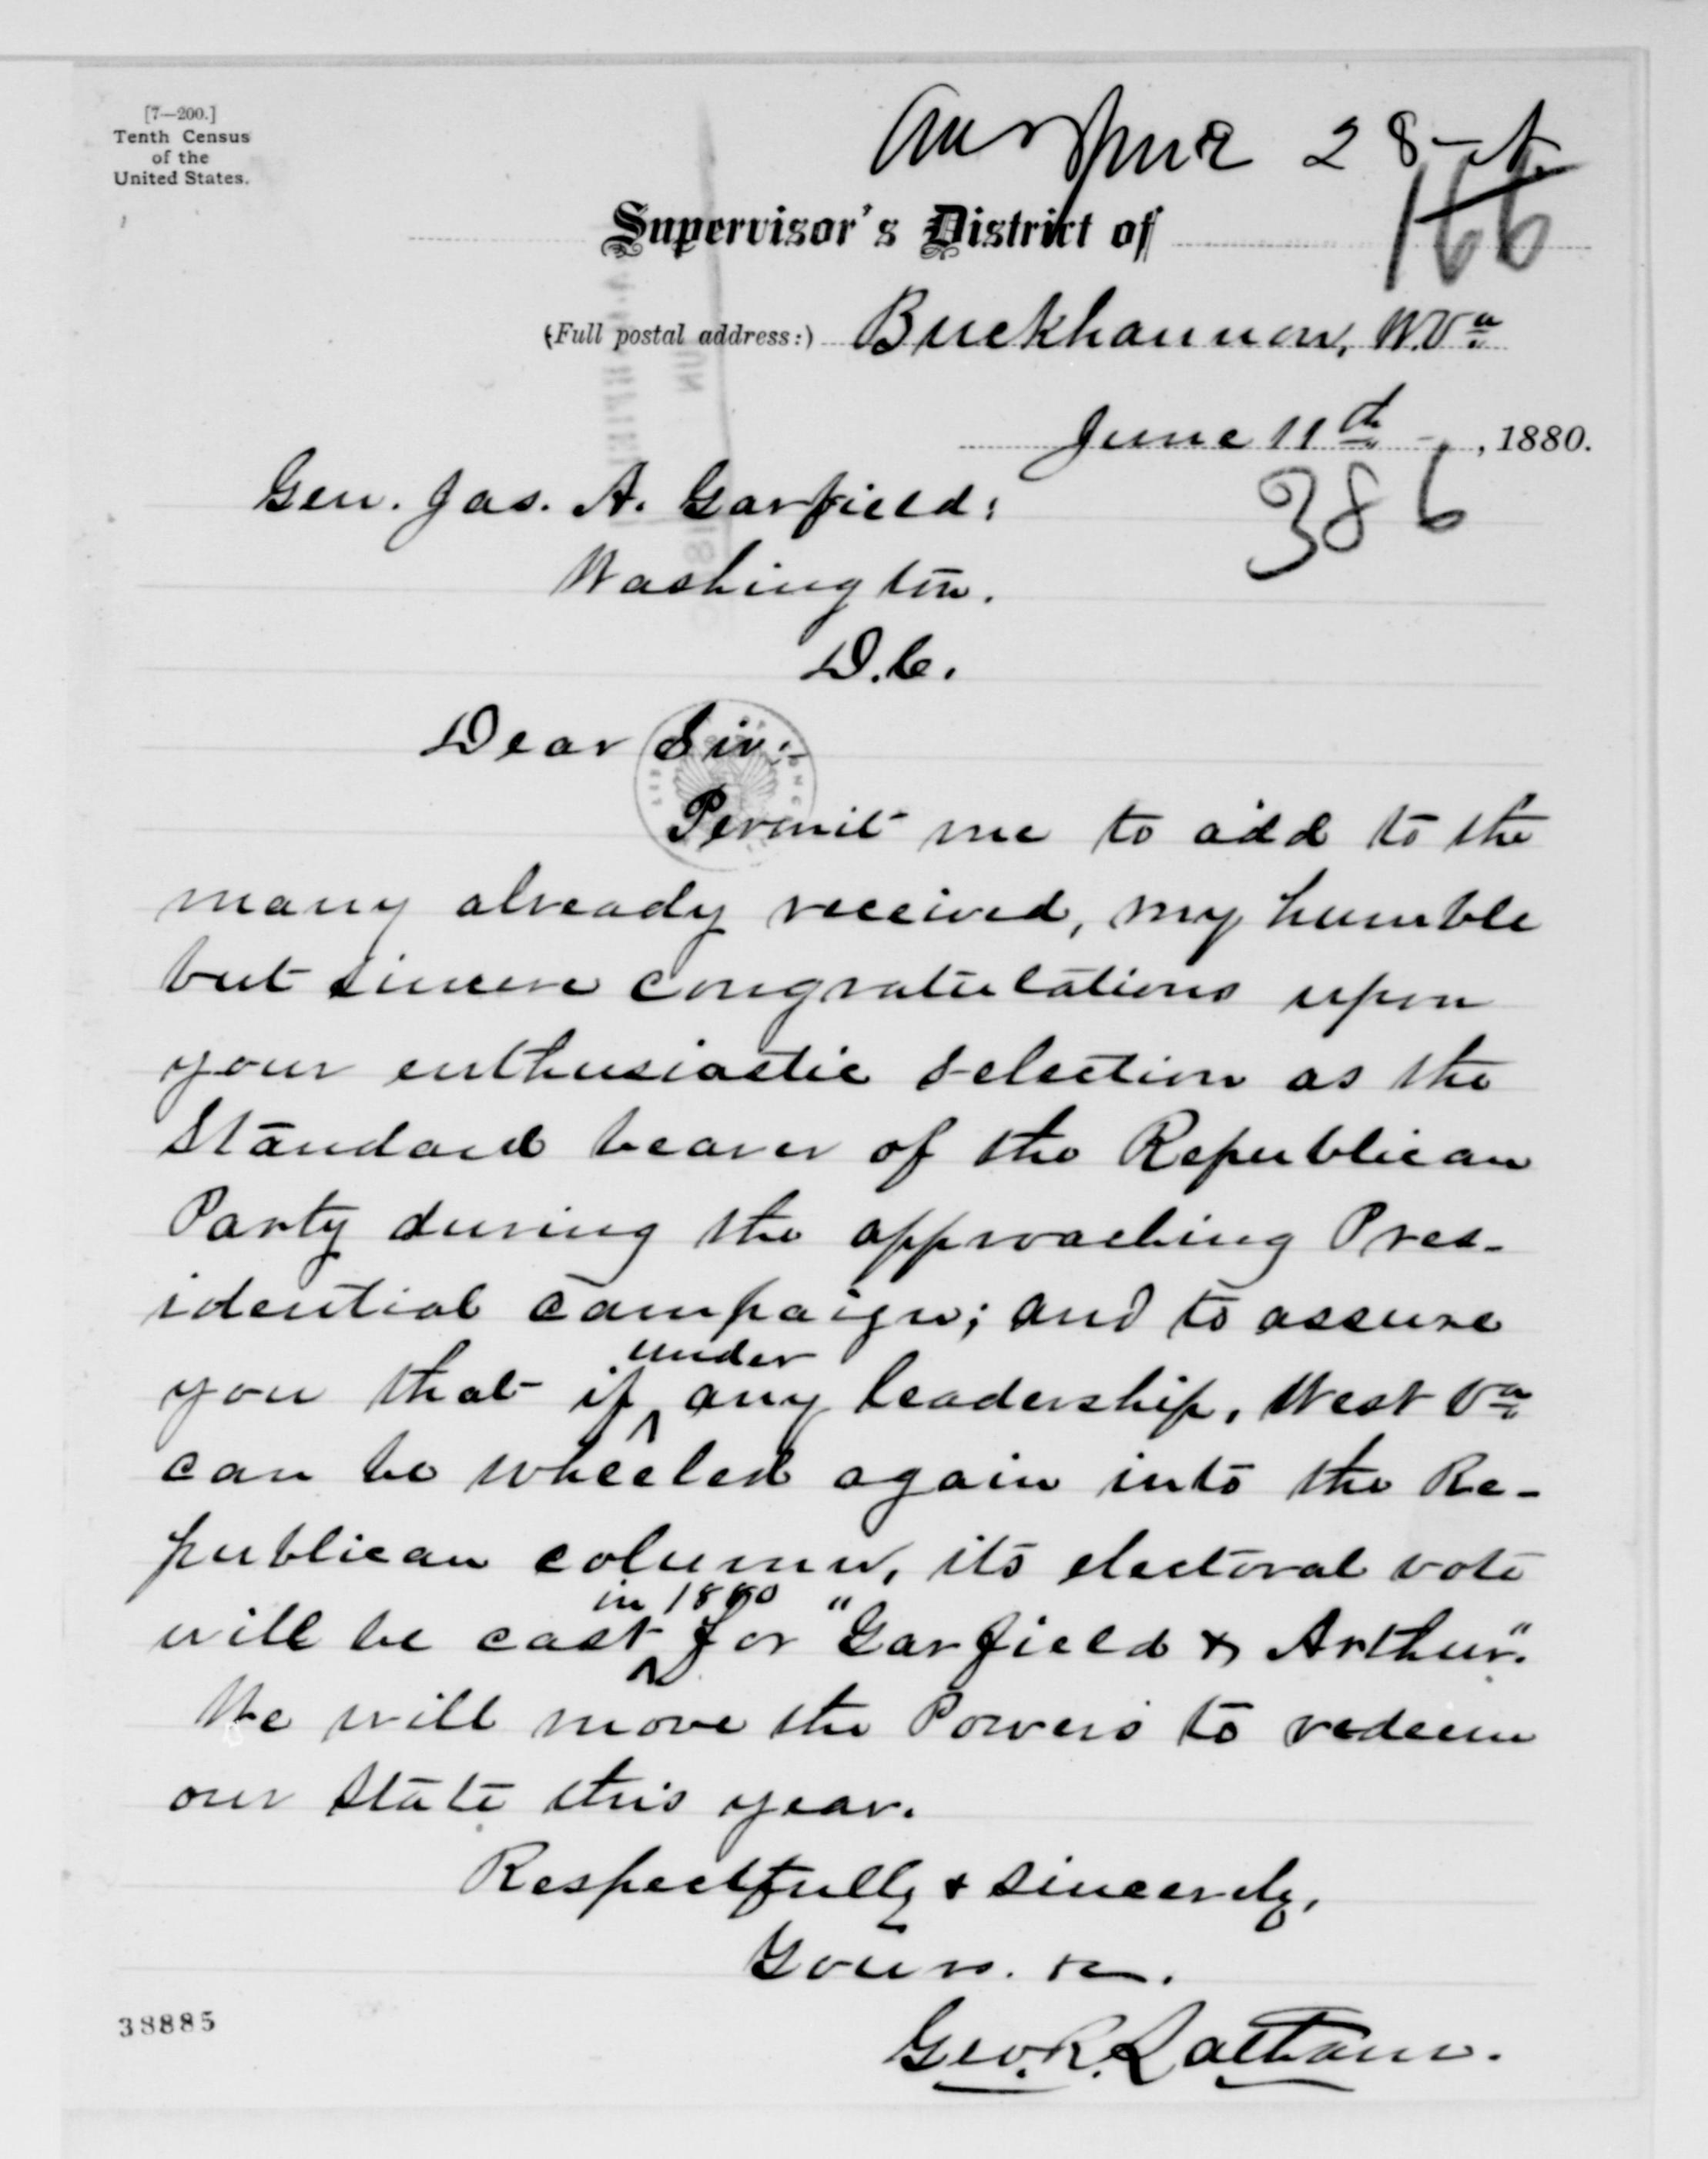 [7—200.]
Tenth Census
of the
United States.
Ans June 28th
166
Supervisor's District of
(Full postal address:) Buckhannon, W.Va
June 11th, 1880.
386
Gen. Jas. A. Garfield:
Washington.
D.C.
Dear Sir:-
Permit me to add to the
many already received, my humble
but sincere congratulations upon
your enthusiastic selection as the
Standard bearer of the Republican
Party during the approaching Pres-
idential campaign; and to assure
you that if under any leadership, West Va
can be wheeled again into the Re-
publican column, its electoral vote
will be cast in 1880 for "Garfield & Arthur."
We will move the Powers to redeem
our State this year.
Respectfully & sincerely,
Yours. &c.
Geo. R. Latham.
38885